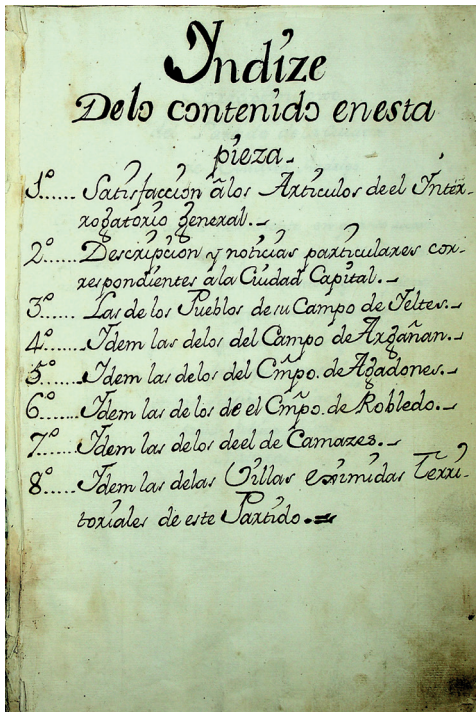 Yndize
Delo contenido enesta
pieza.
1º...... Satisfaccion âlos Articulos de el Inter-
rogatorio general.
2º...... Descripcion y noticias particulares cor-
respondientes ala Ciudad Capital.
3º...... Las de los Pueblos de su Campo de Yeltes.
4º...... Idem las delos del Campo de Argañan.
5º...... Idem las delos del Cmpo. de Agadones.
6º...... Idem las de los de el Cmpo. de Robledo.
7º...... Idem las delos deel de Camazes.
8º...... Idem las delas Villas eximidas Terri-
toriales de este Partido.